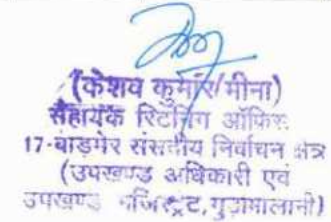 (केशव कुमार मीना)
सहायक रिटर्निंग ऑफिसर
17-बाड़मेर संसदीय निर्वाचन क्षेत्र
(उपखण्ड अधिकारी एवं
उपखण्ड मजिस्ट्रेट, गुडामालानी)